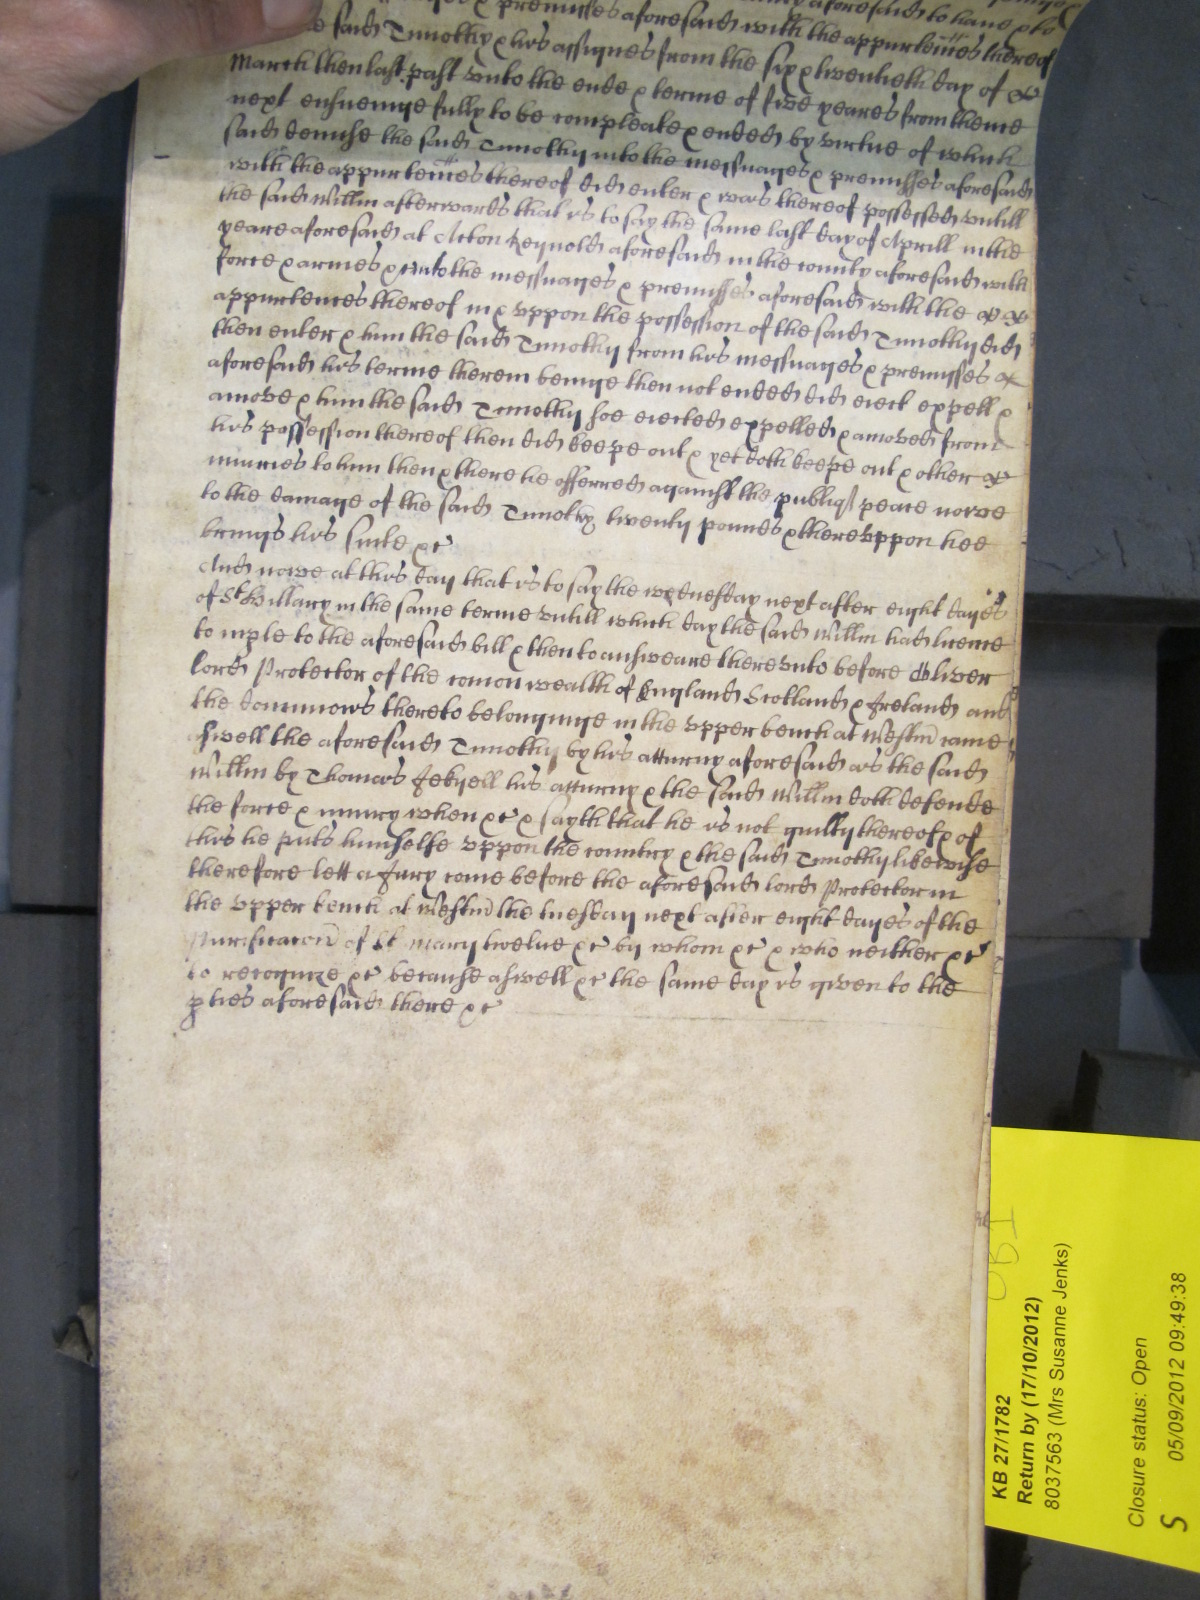 premisses aforesaid with the appurtences thereof
said Timothy & his assignes from the six & twentieth day of
March then last past unto the ende & terme of five yeares from thence
next ensueinge fully to be compleate & ended by virtue of which
said demise the said Timothy into the messuages & premisses aforesaid
with the appurtences thereof did enter & was thereof possessed untill
the said Willm afterwards that is to say the same last day of Aprill in the
yeare aforesaid at Acton Reynold aforesaid in the county aforesaid with
force & armes &c into the messuages & premisses aforesaid with the
appurtences thereof in & uppon the possession of the said Timothy did
then enter & him the said Timothy from his messuages & premisses
aforesaid his terme therein beinge then not ended did eiect expell &
amove & him the said Timothy soe eiected expelled & amoved from
his possession thereof then did keepe out & yet doth keepe out & other
iniuries to him then & there he offerred against the publiq peace nowe
to the damage of the said Timothy twenty pounds & thereuppon hee
brings his suite &c
And nowe at this day that is to say the wednesday next after eight dayes
of St Hillary in the same terme untill which day the said Willm had licence
to imple to the aforesaid bill & then to answeare thereunto before Oliver
lord Protector of the comon wealth of England Scotland & Ireland and
the dominions thereto belonginge in the upper bench at Westm came
aswell the aforesaid Timothy by his atturny aforesaid as the said
Willm by Thomas Jekyell his atturny & the said Willm doth defende
the force & iniury when &c & sayth that he is not guilty thereof & of
this he puts himselfe uppon the country & the said Timothy likewise
therefore lett a Jury come before the aforesaid lord Protector in
the upper bench at Westm the tuesday next after eight dayes of the
Purificacon of St Mary twelve &c by whom &c & who neither &c
to recognize &c because aswell &c the same day is given to the
pties aforesaid there &c
KB 27/1782
Return by (17/10/2012)
8037563 (Mrs Susanne Jenks)
Closure status: Open
05/09/2012 09:49:38
S